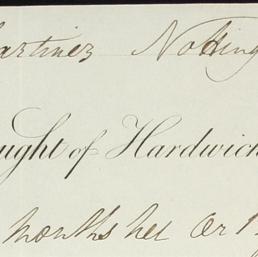 artinez Notting
ught of Hardwick
months net or 1